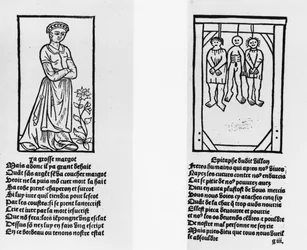 La grosse margot
Mais adonc il ya grant deshait
Quāt sãs argēt sen va coucher margot
Veoir ne la puis mō cueur a mort la hait
Sa robe prens chaperon et surcot
Si luy iure quil tiendra pour lescot
Par les costes si se prent lantecrist
Crie et iure par la mort iesucrist
Que nō fera lors iēpongne ūg esclat
Dessus sō nez luy en fais ūg escript
En ce bordeau ou tenons nostre estat
Epitaphe dudit Villon
Freres humains qui apres no⁹ viuez
Nayez les cueurs contre no⁹ endurcis
Car se pitie de no⁹ pouurez auez
Dieu en aura plustost de vous mercis
Vous nous voies cy ataches cinq six
Quāt de la char q̄ trop auōs nourrie
Elleest pieca deuouree et pourrie
et no⁹ les os deuenōs cēdres et pouldre
De nostre mal personne ne sen rie
Mais priez dieu que tous nous vueil
le absouldre
giii